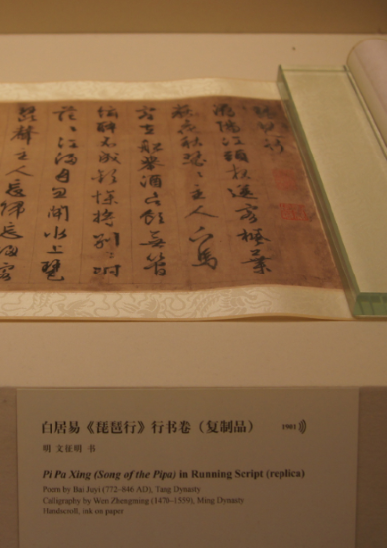 琵琶行
潯陽江頭夜送客楓葉
荻花秋瑟〻主人下馬
客在船舉酒欲飲無管
絃醉不成歡慘將別〻時
茫〻江浸月忽聞水上琵
琶聲主人忘歸客
白居易《琵琶行》行书卷（复制品）
1981
明 文征明 书
Pi Pa Xing (Song of the Pipa) in Running Script (replica)
Poem by Bai Juyi (772–846 AD), Tang Dynasty
Calligraphy by Wen Zhengming (1470–1559), Ming Dynasty
Handscroll, ink on paper